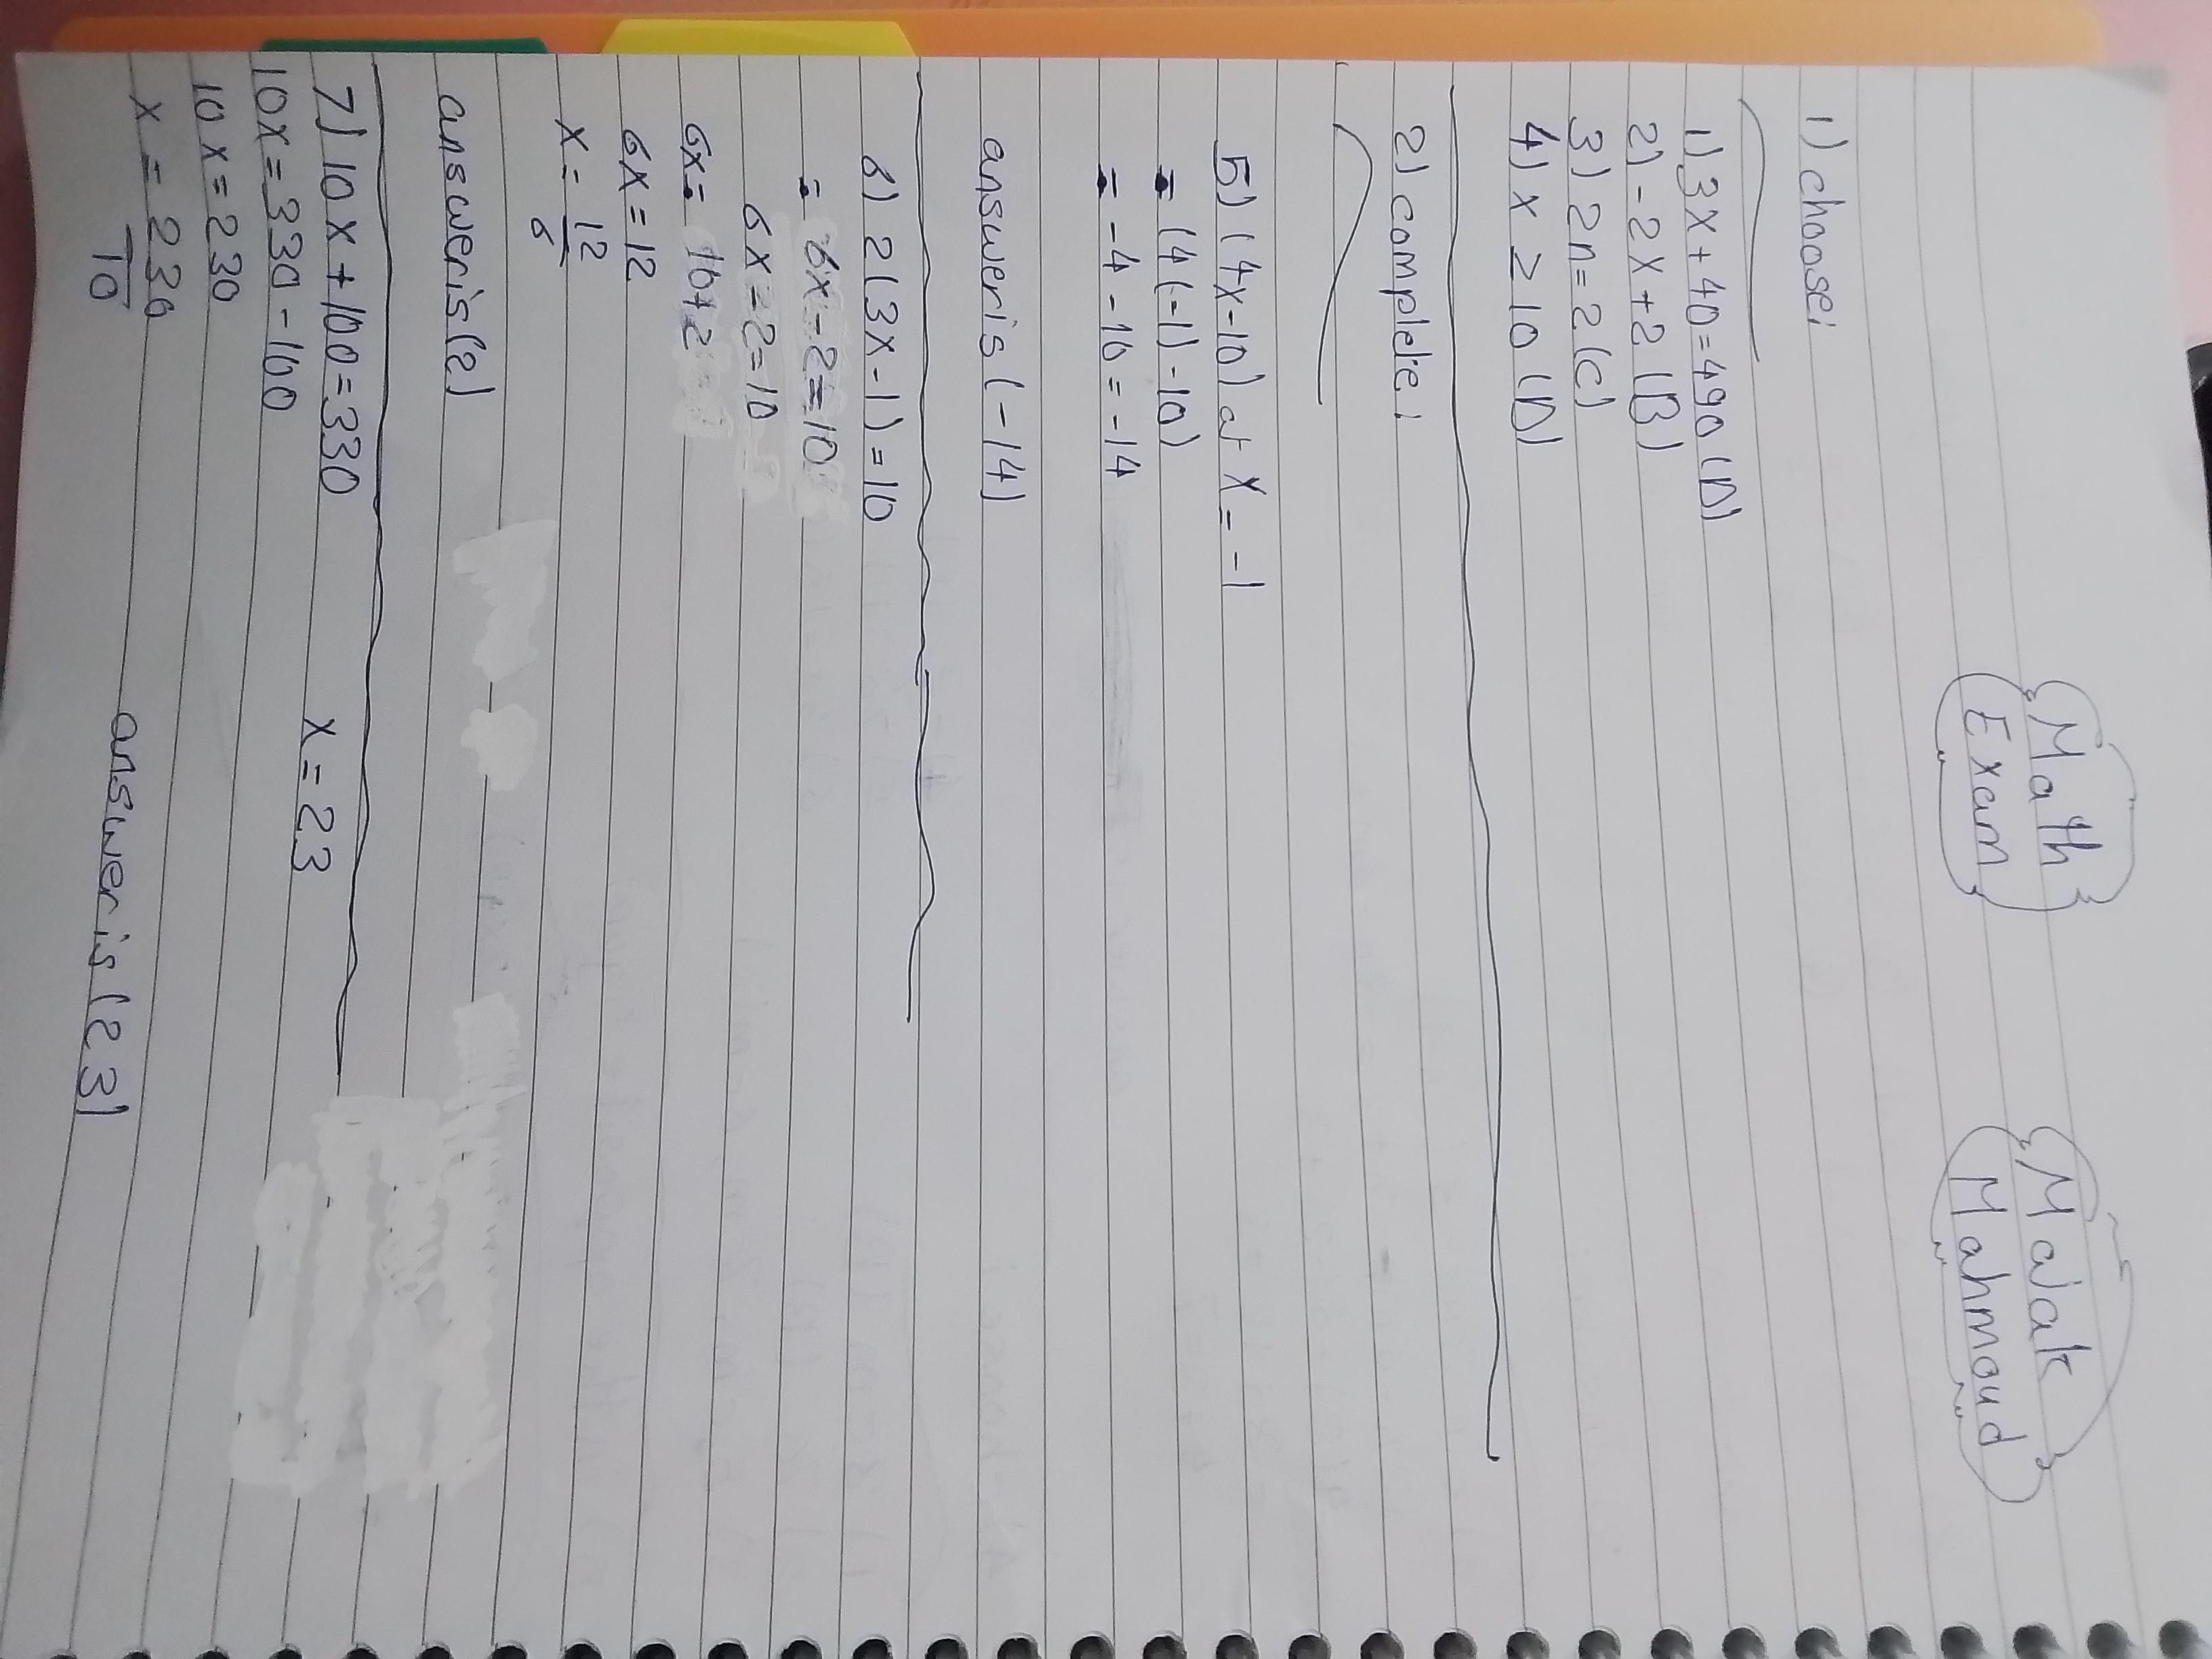 Math
Exam
Malak
Mahmoud
1) choose:
1) 3x+40=490 (D)
2) -2x+2 (B)
3) 2n=2 (C)
4) x ≥ 10 (D)
2) complete:
5) (4x-10) at x=-1
= (4(-1)-10)
= -4-10=-14
answer is (-14)
6) 2(3x-1)=10
= 6x-2=10
6x-2=10
6x= 10+2
6x=12
x= 12/6
answer is (2)
7) 10x+100=330
x=23
10x=330-100
10x=230
x= 230/10
answer is (23)